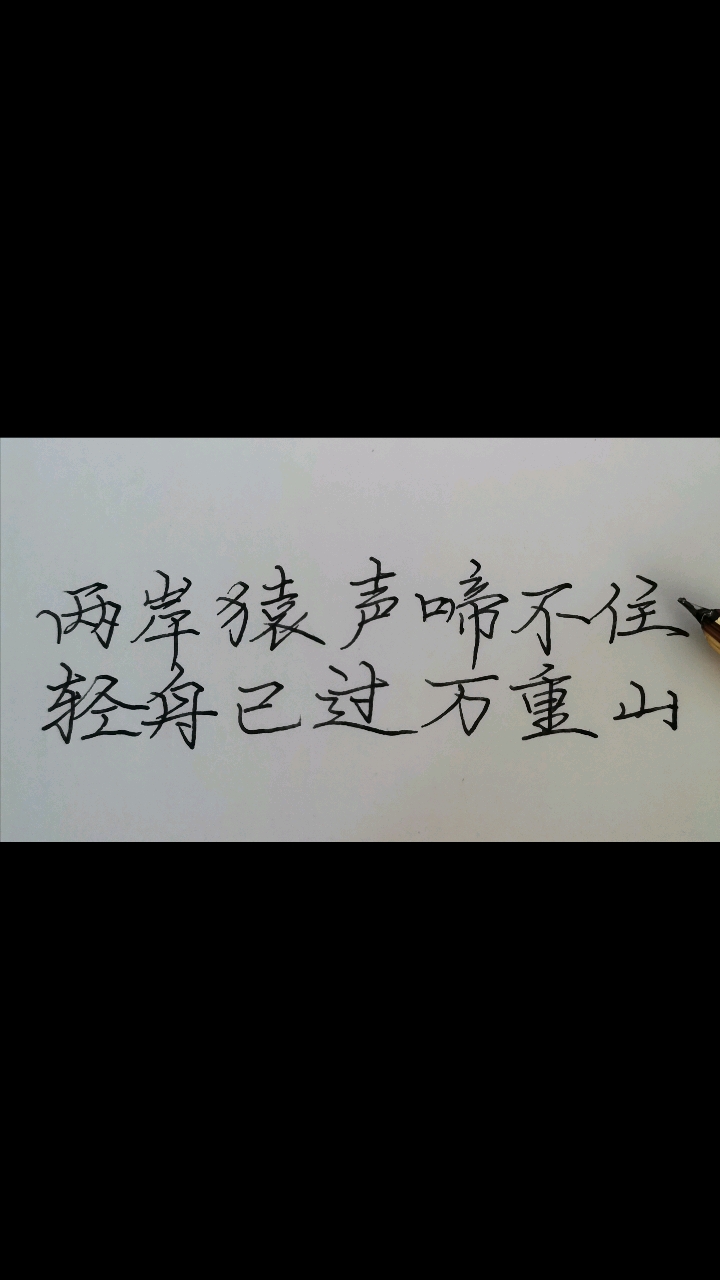 两岸猿声啼不住
轻舟已过万重山